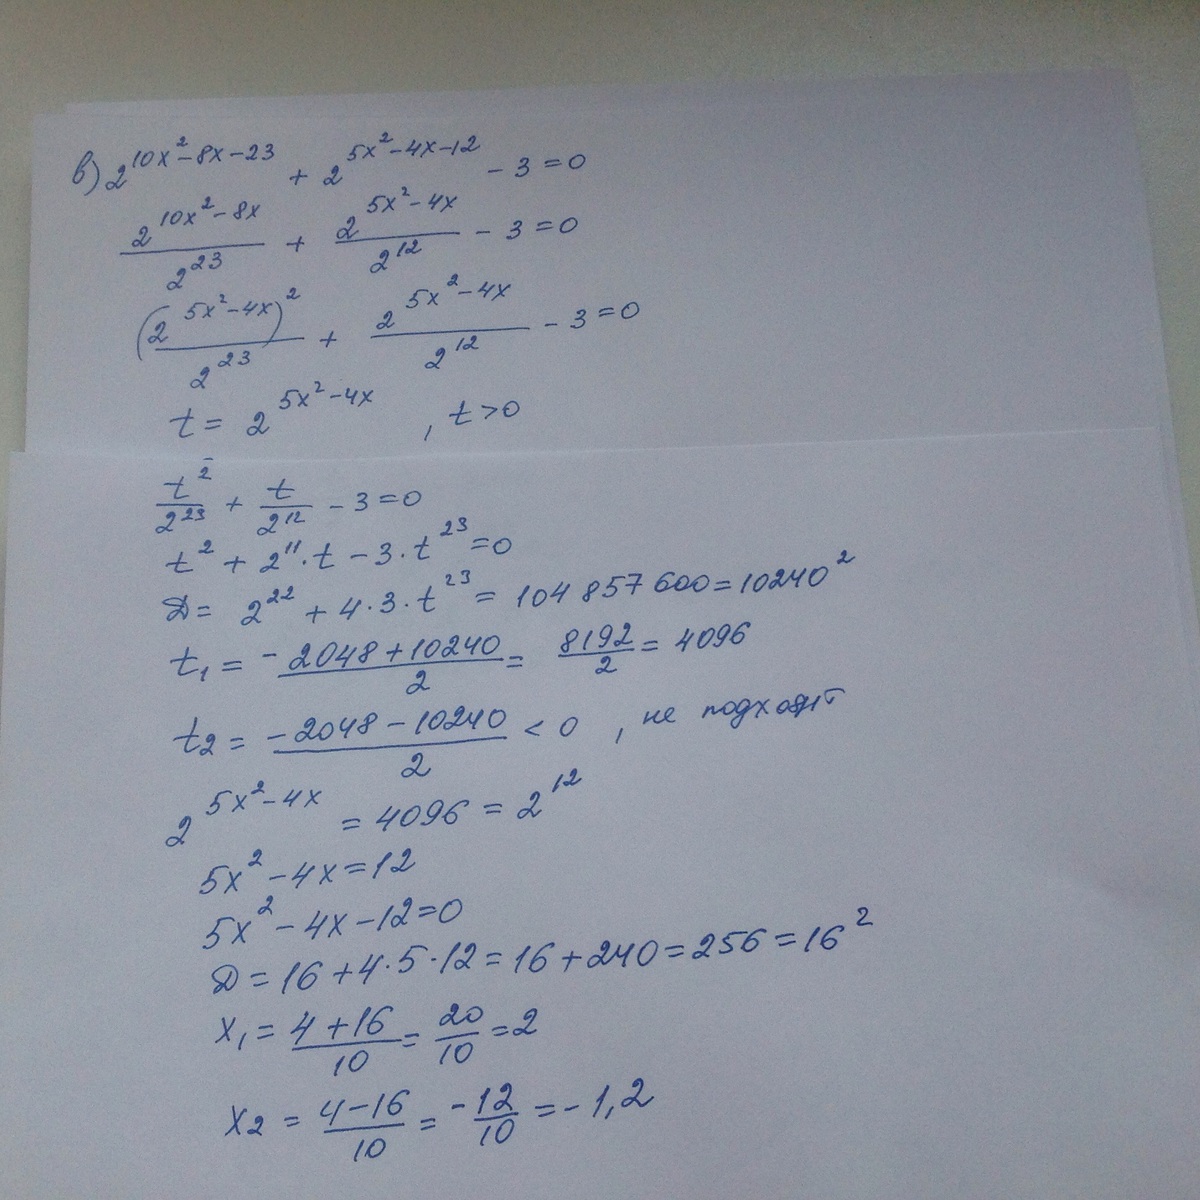 в) 2^(10x²-8x-23) + 2^(5x²-4x-12) - 3 = 0
2^(10x²-8x)/2^23 + 2^(5x²-4x)/2^12 - 3 = 0
(2^(5x²-4x))²/2^23 + 2^(5x²-4x)/2^12 - 3 = 0
t = 2^(5x²-4x) , t > 0
t²/2^23 + t/2^12 - 3 = 0
t² + 2^11 · t - 3 · t^23 = 0
D = 2^22 + 4 · 3 · t^23 = 104 857 600 = 10240²
t₁ = (-2048 + 10240)/2 = 8192/2 = 4096
t₂ = (-2048 - 10240)/2 < 0 , не подходит
2^(5x²-4x) = 4096 = 2^12
5x² - 4x = 12
5x² - 4x - 12 = 0
D = 16 + 4 · 5 · 12 = 16 + 240 = 256 = 16²
x₁ = (4 + 16)/10 = 20/10 = 2
x₂ = (4 - 16)/10 = -12/10 = -1,2